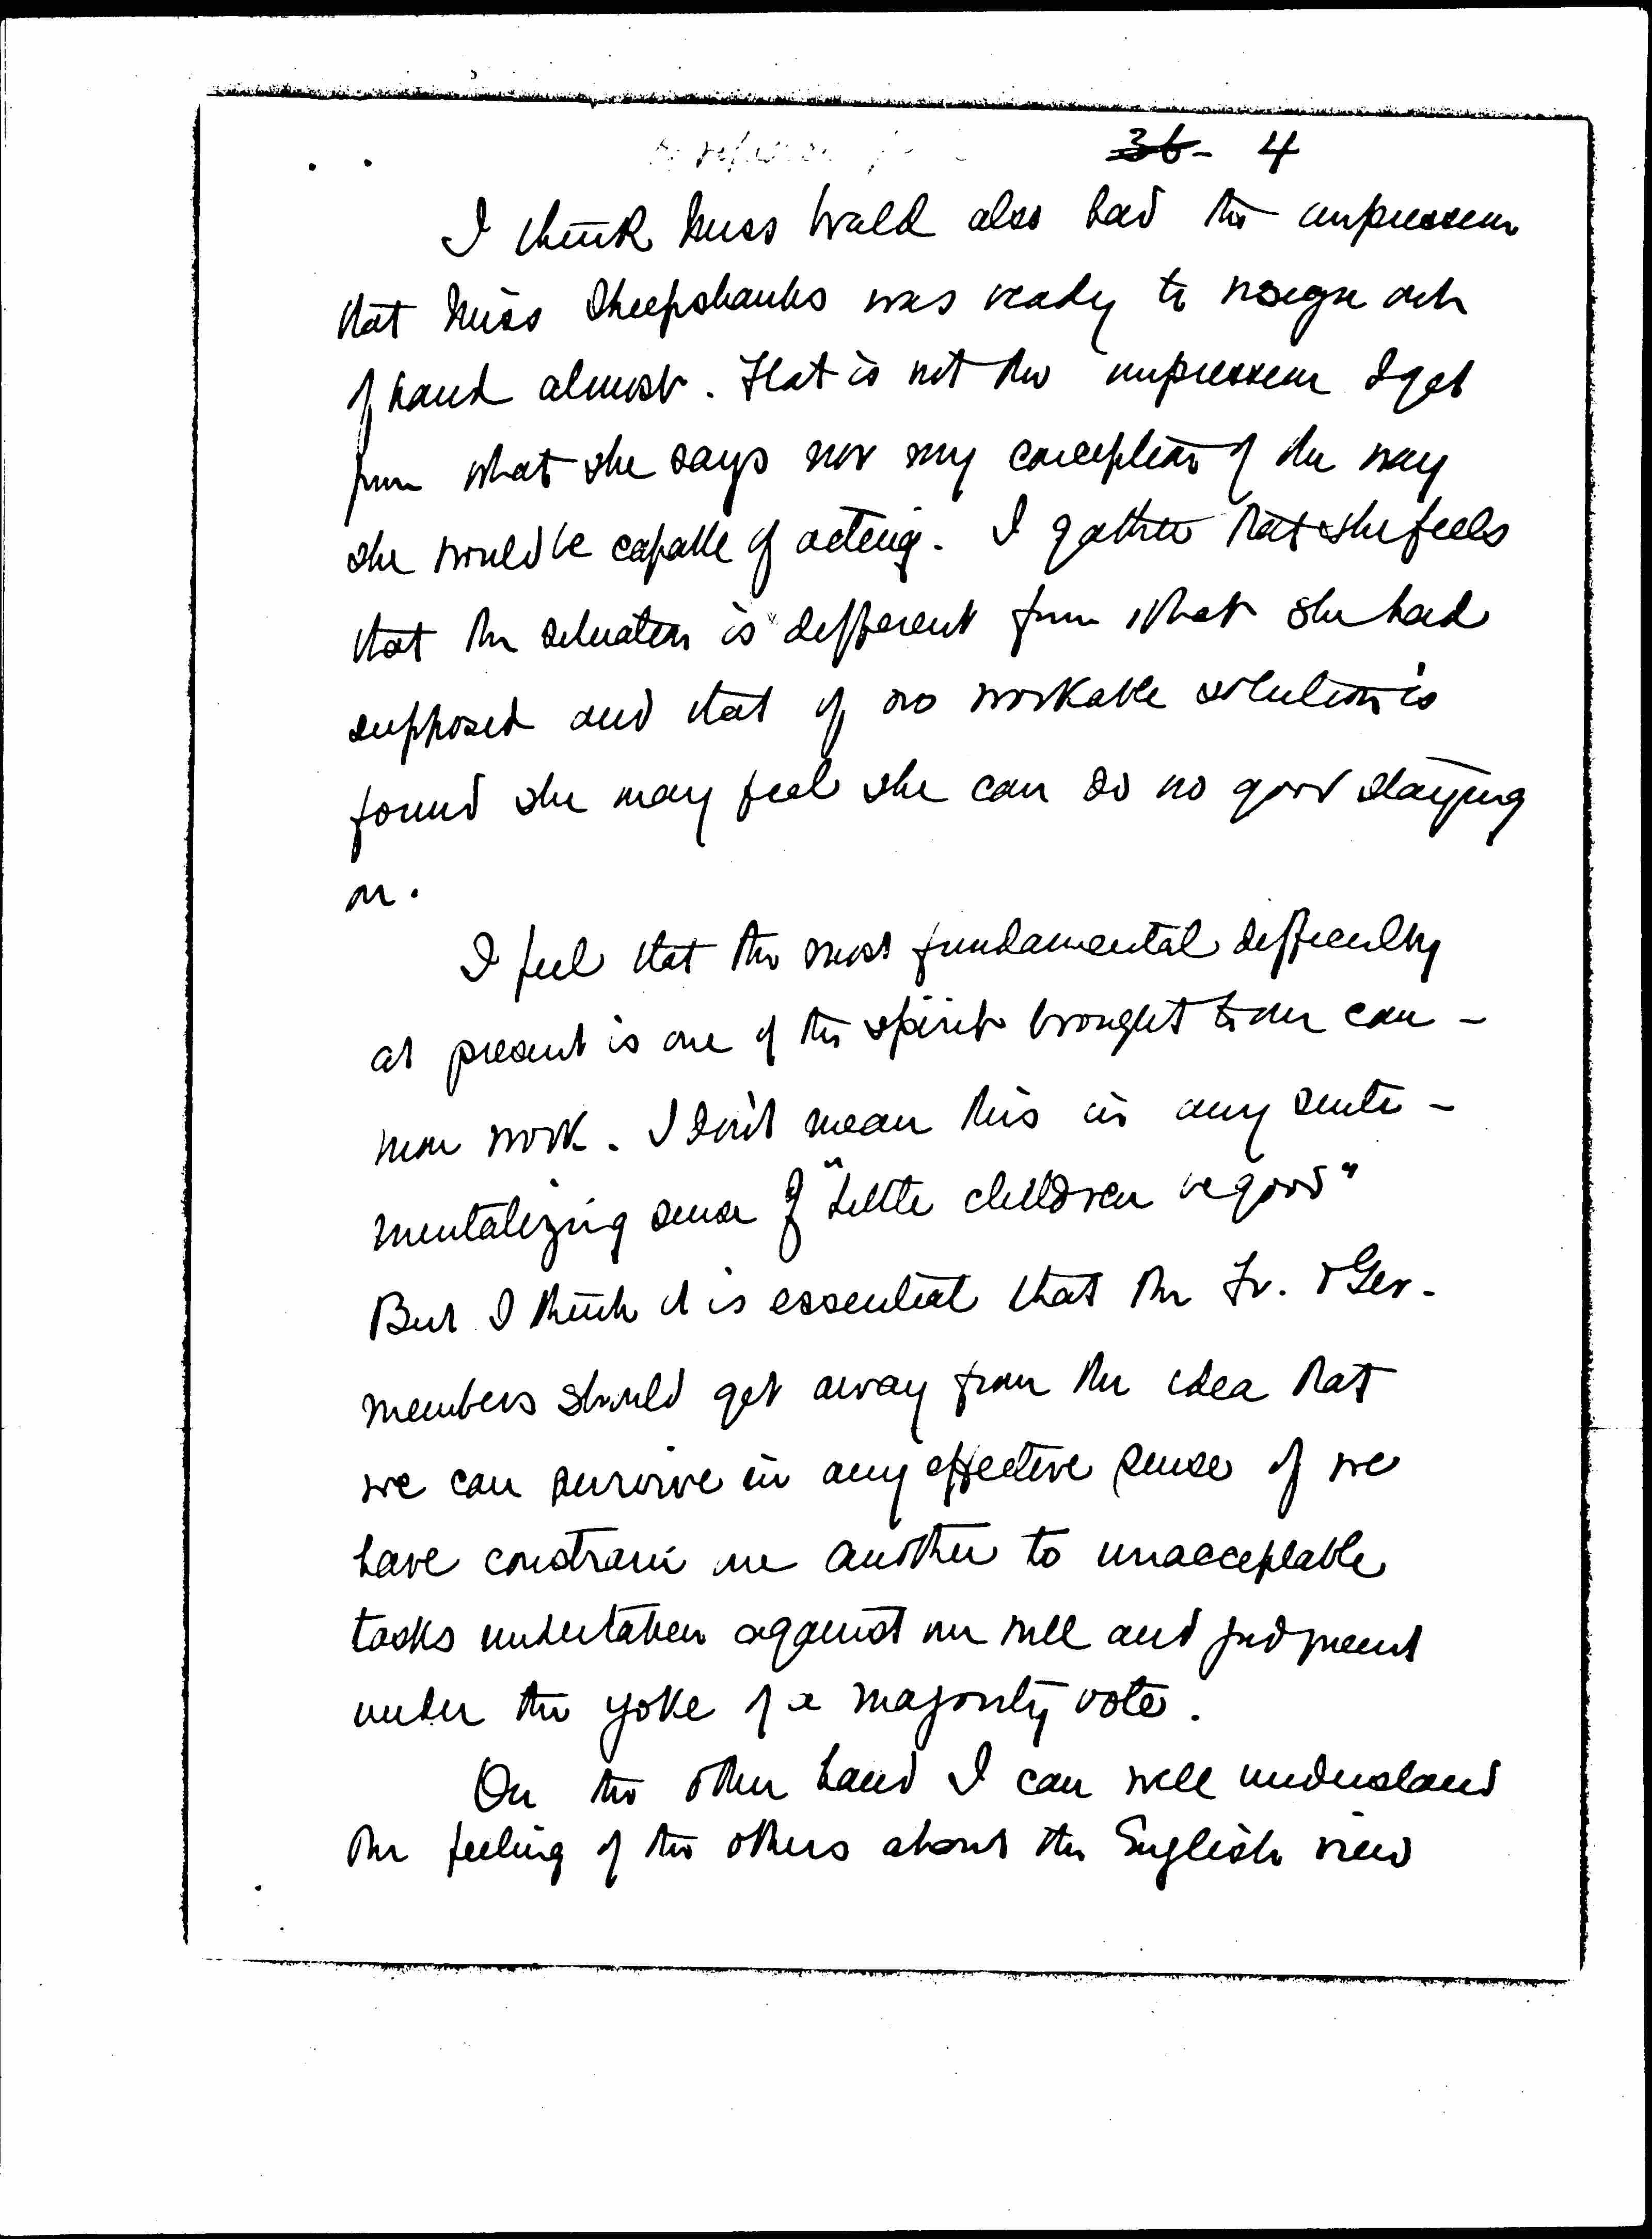 3b- 4
I think Miss Wald also had the impression
that Miss Sheepshanks was ready to resign out
of hand almost. That is not the impression I get
from what she says nor my conception of the way
she would be capable of acting. I gather that she feels
that the situation is different from what she had
supposed and that if no workable solution is
found she may feel she can do no good staying
on.
I feel that the most fundamental difficulty
at present is one of the spirit brought to our com-
mon work. I don't mean this in any senti-
mentalizing sense of "Little children be good"
But I think it is essential that the Fr. & Ger.
members should get away from the idea that
we can survive in any effective sense if we
have constrain one another to unacceptable
tasks undertaken against our will and judgment
under the yoke of a majority vote.
On the other hand I can well understand
the feeling of the others about the English view